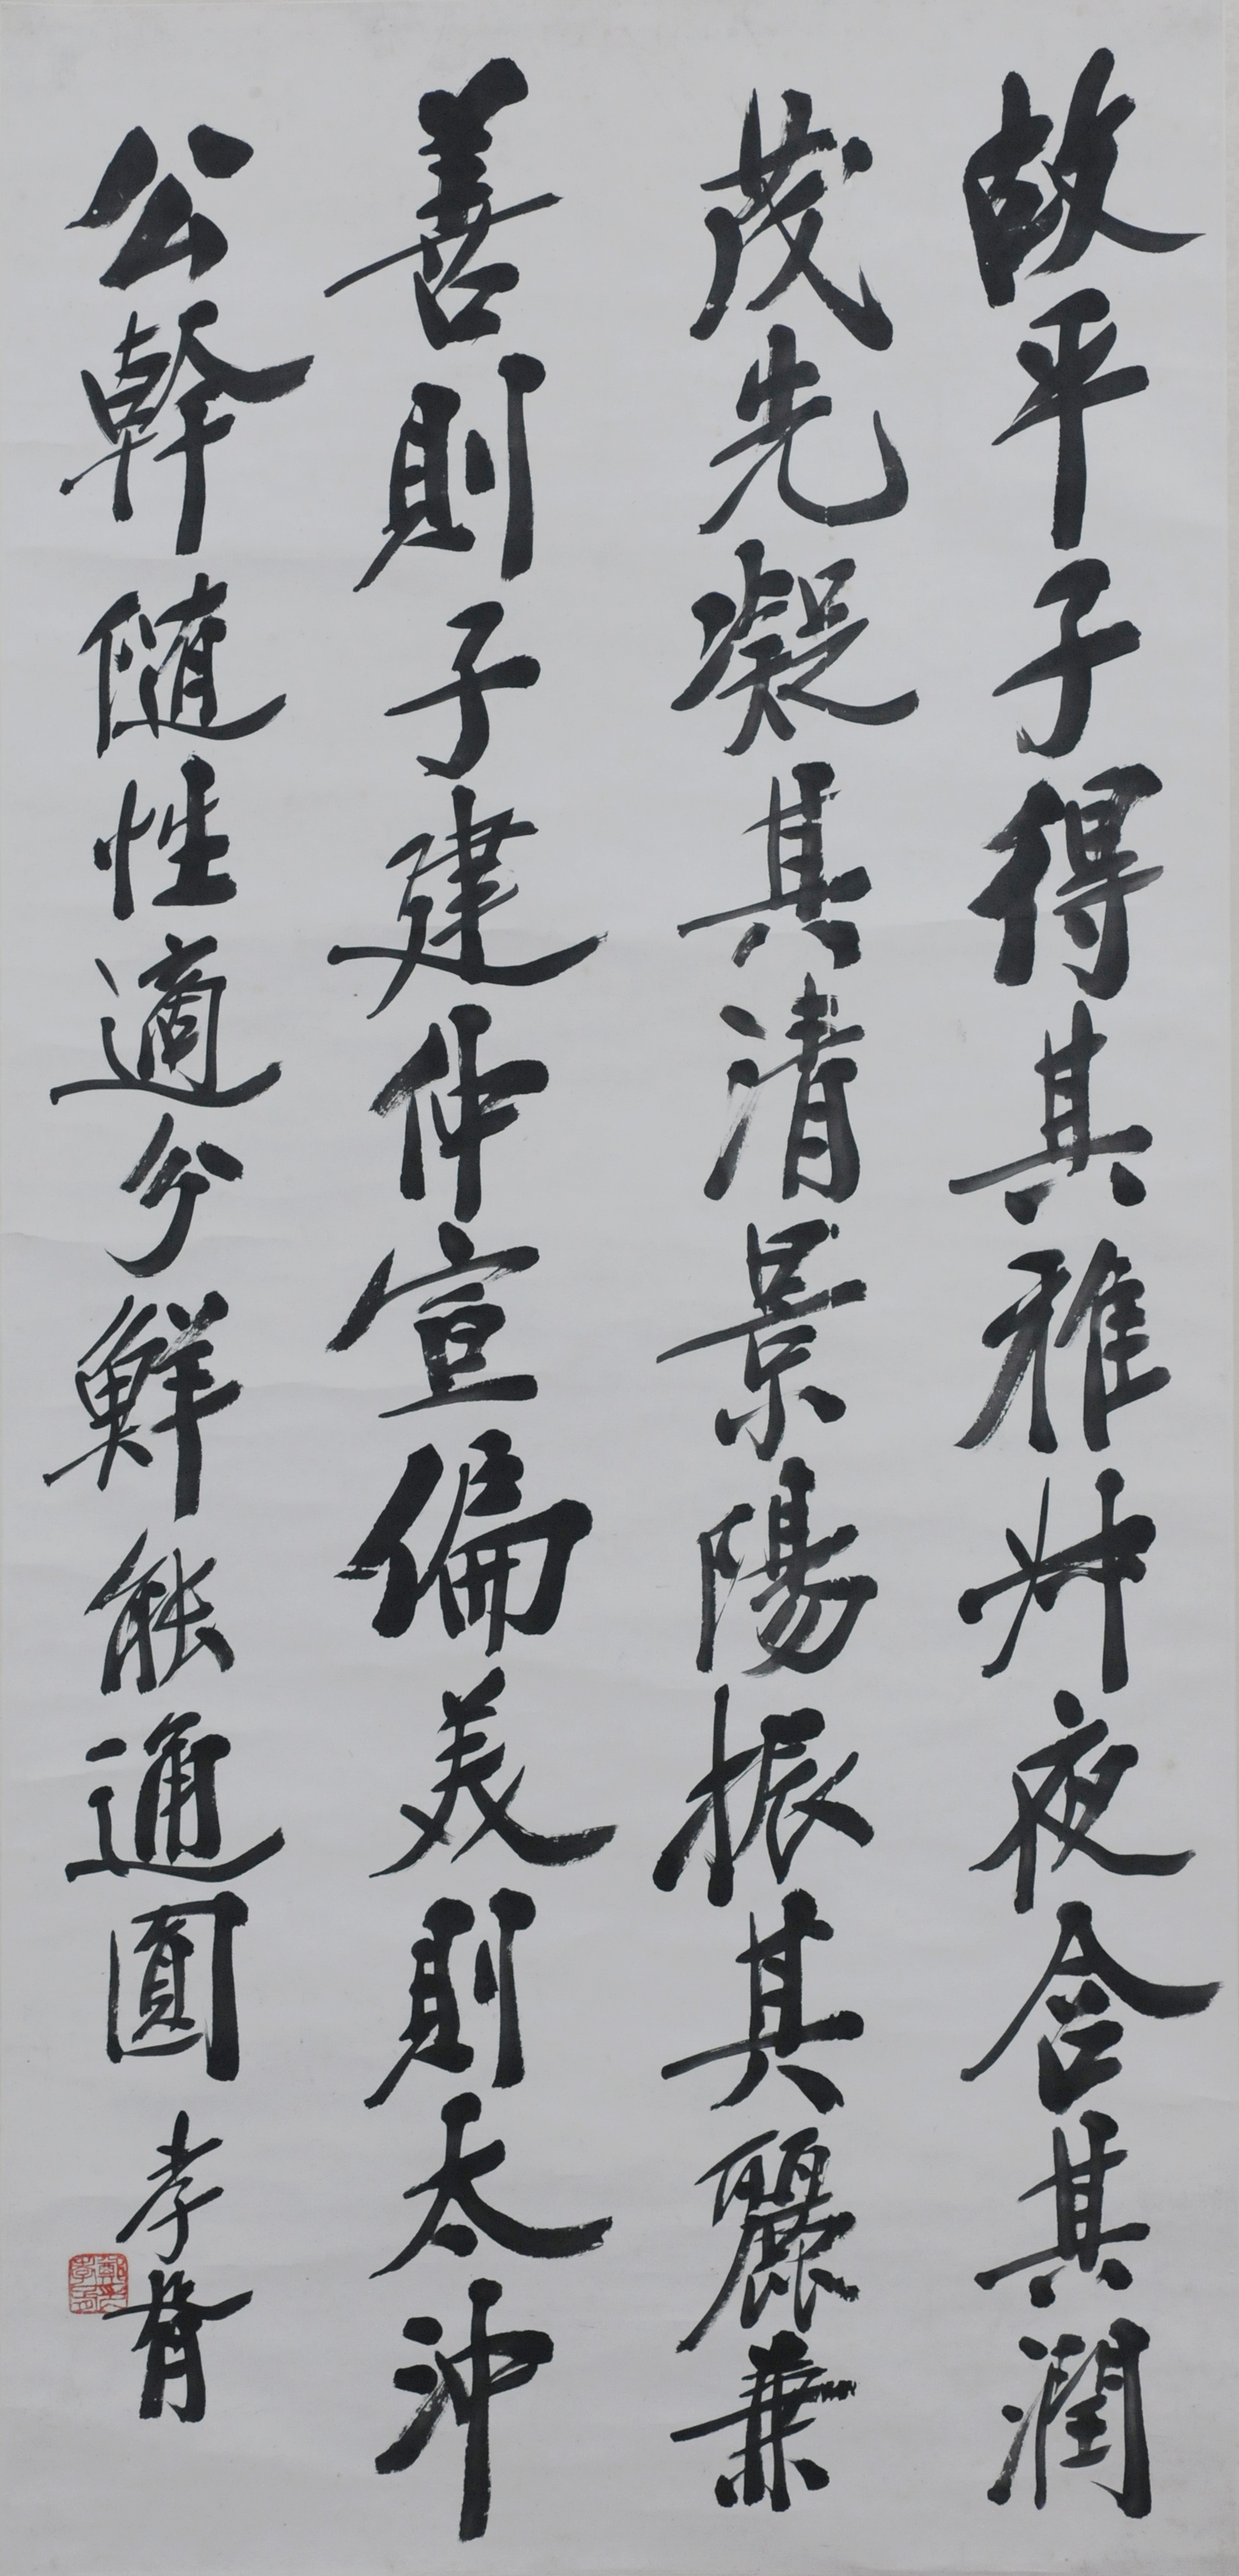 故平子得其雅叔夜含其潤
茂先凝其清景陽振其麗兼
善則子建仲宣偏美則太沖
公幹隨性適分鮮能通圓
孝胥